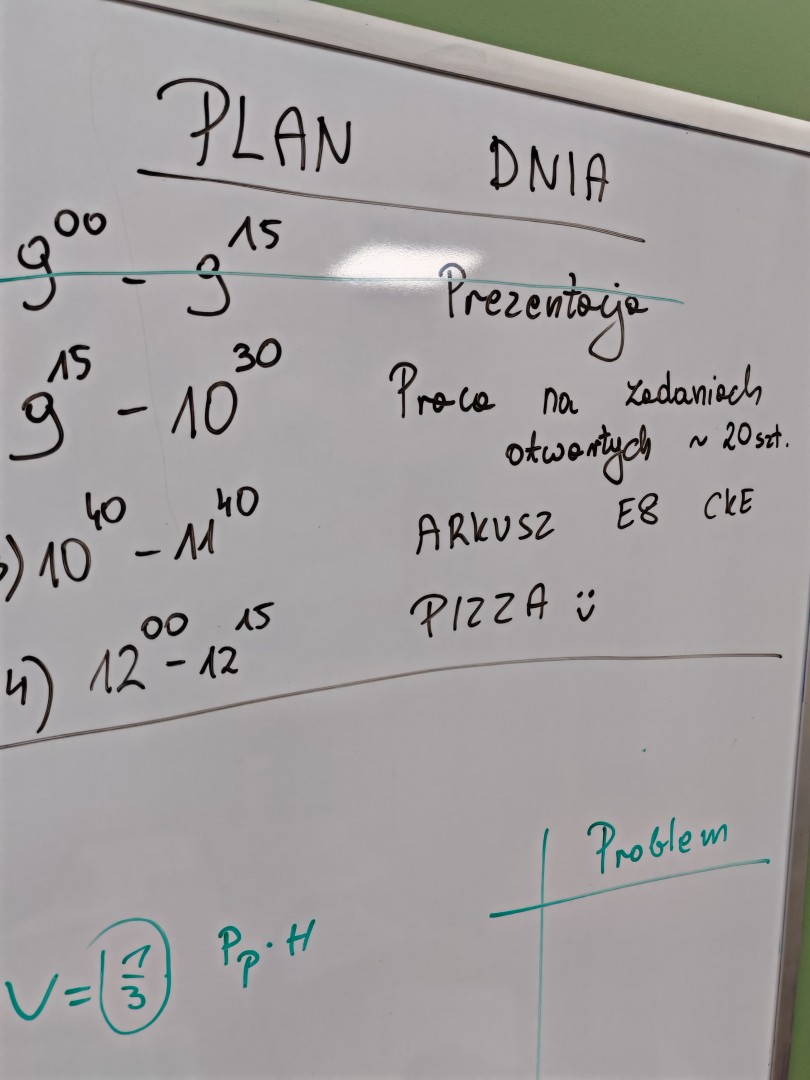 PLAN DNIA
9⁰⁰ - 9¹⁵ Prezentacja
9¹⁵ - 10³⁰ Praca na zadaniach
otwartych ~ 20 szt.
) 10⁴⁰ - 11⁴⁰ ARKUSZ E8 CKE
4) 12⁰⁰ - 12¹⁵ PIZZA :)
Problem
V = 1/3 Pp · H